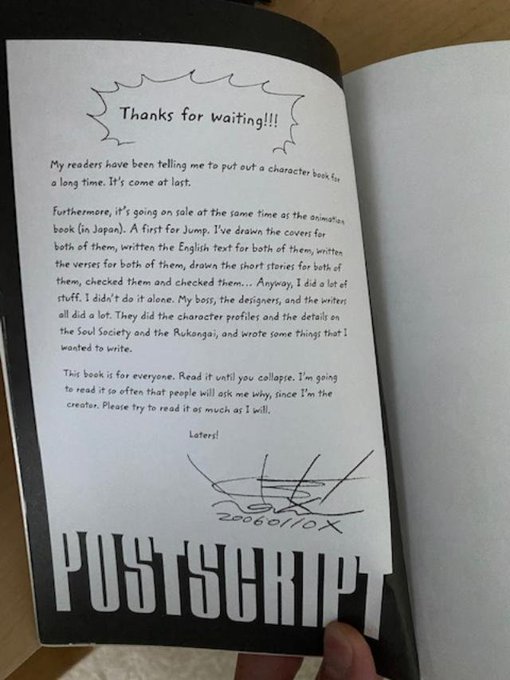 Thanks for waiting!!!
My readers have been telling me to put out a character book for
a long time. It's come at last.
Furthermore, it's going on sale at the same time as the animation
book (in Japan). A first for Jump. I've drawn the covers for
both of them, written the English text for both of them, written
the verses for both of them, drawn the short stories for both of
them, checked them and checked them... Anyway, I did a lot of
stuff. I didn't do it alone. My boss, the designers, and the writers
all did a lot. They did the character profiles and the details on
the Soul Society and the Rukongai, and wrote some things that I
wanted to write.
This book is for everyone. Read it until you collapse. I'm going
to read it so often that people will ask me why, since I'm the
creator. Please try to read it as much as I will.
Laters!
20060110X
POSTSCRIPT